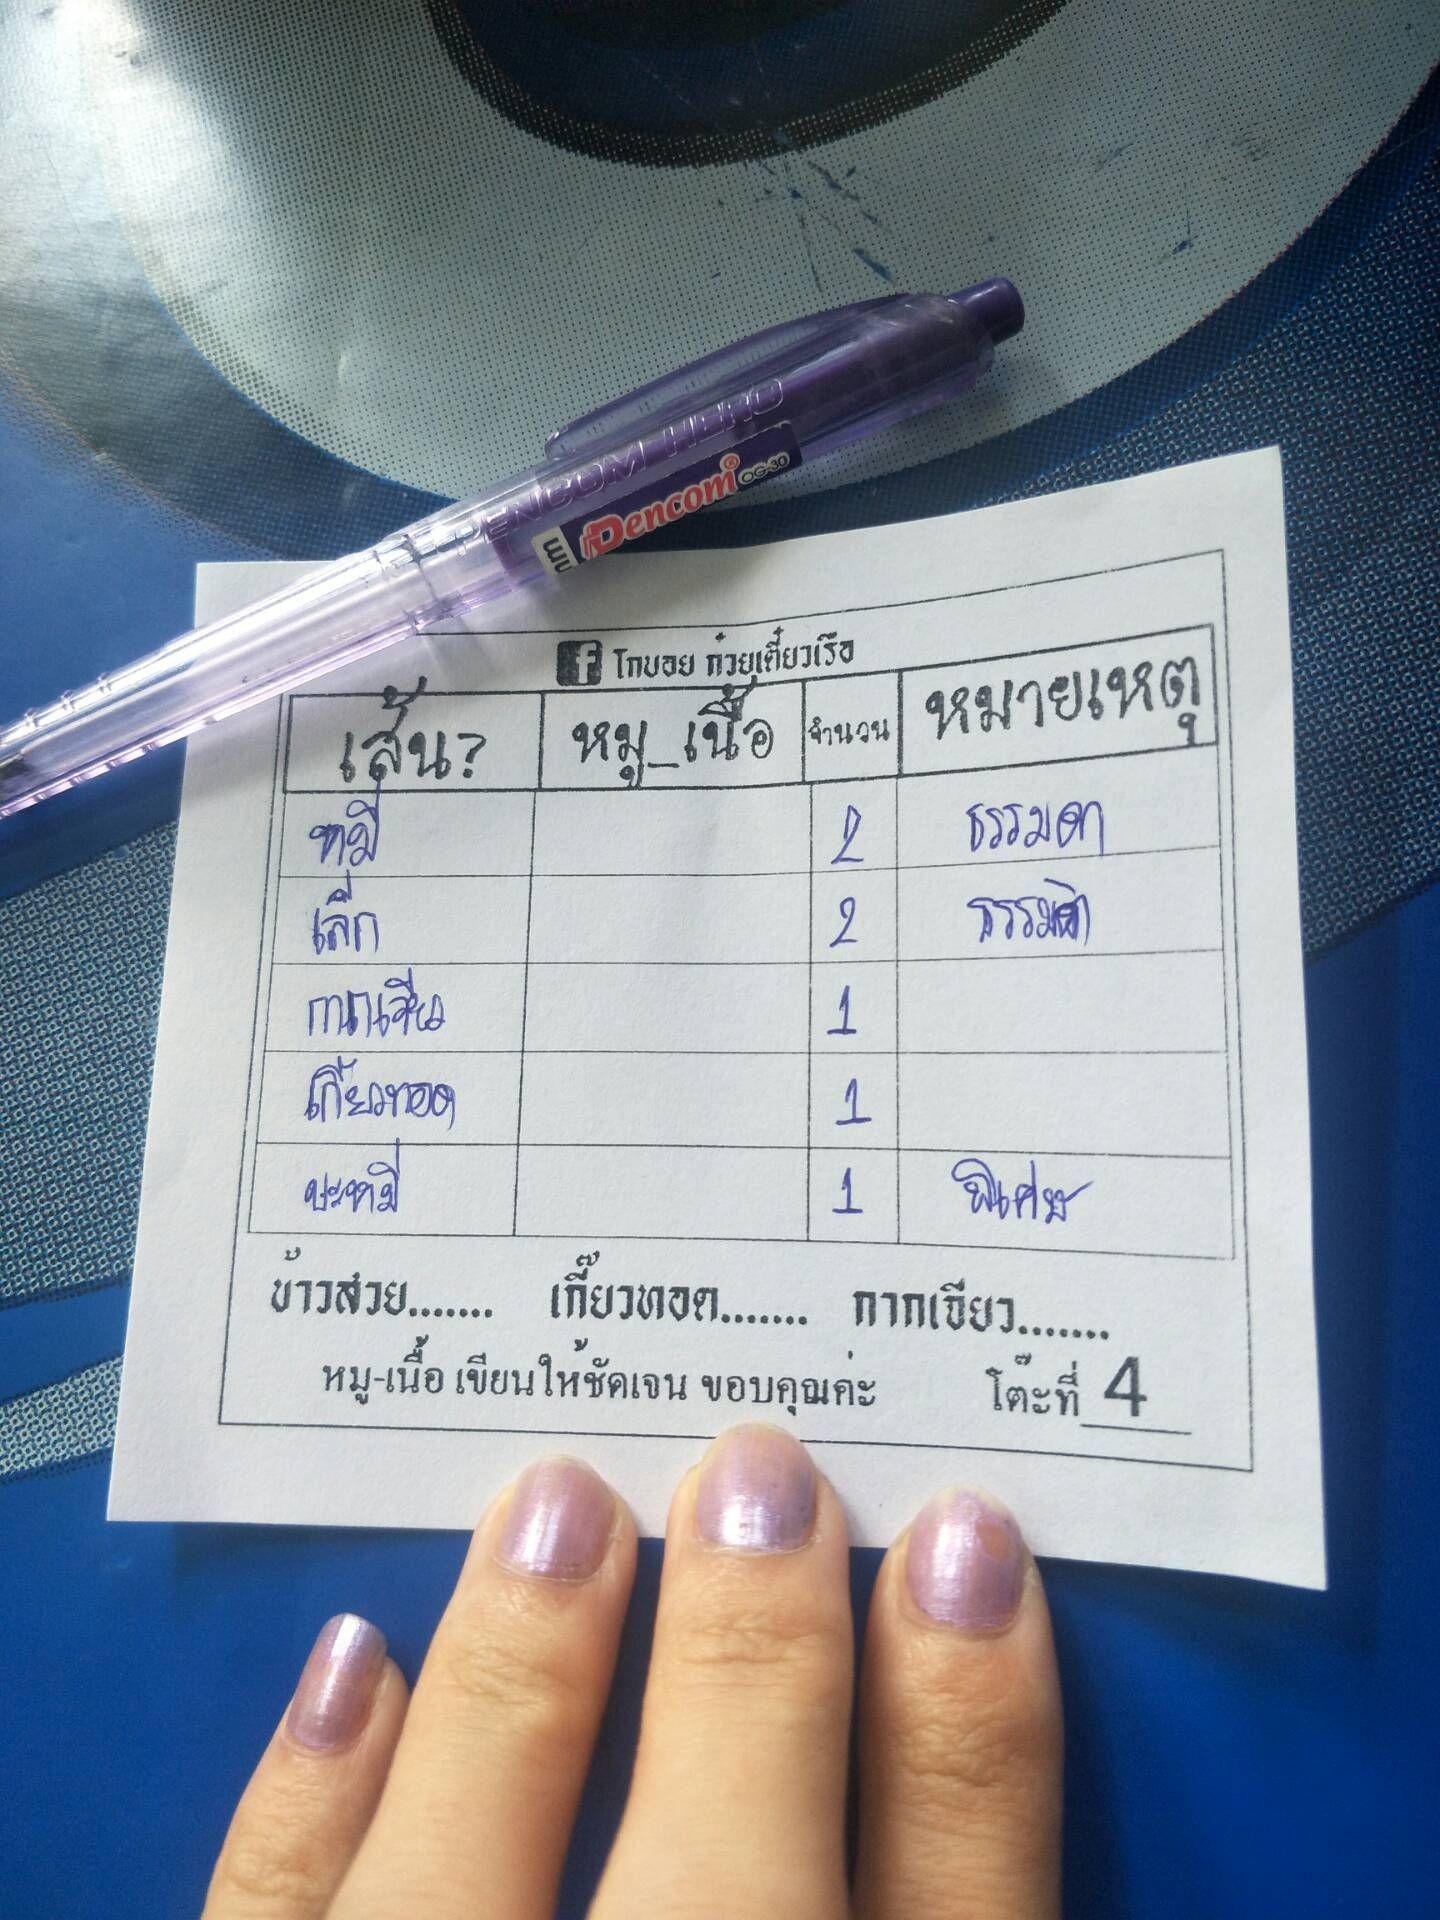 PENCOM HERO
Pencom OG-30
โกบอย ก๋วยเตี๋ยวเรือ
เส้น? หมู_เนื้อ จำนวน หมายเหตุ
หมี่ 2 ธรรมดา
เล็ก 2 ธรรมดา
กากเจียว 1
เกี๊ยวทอด 1
บะหมี่ 1 พิเศษ
ข้าวสวย....... เกี๊ยวทอด....... กากเจียว.......
หมู-เนื้อ เขียนให้ชัดเจน ขอบคุณค่ะ โต๊ะที่ 4